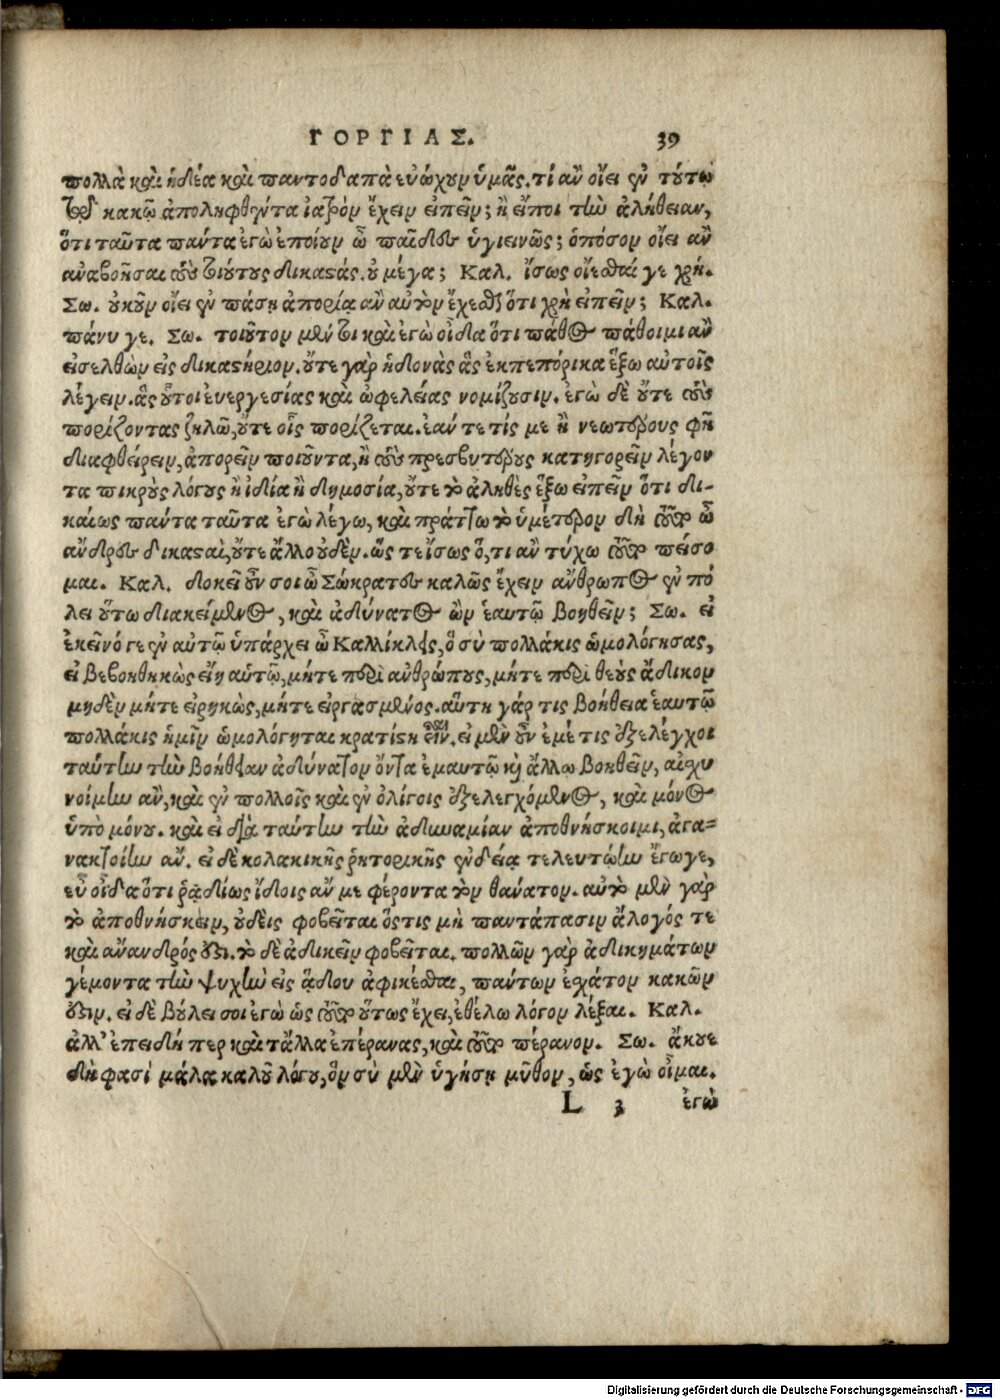 ΓΟΡΓΙΑΣ. 39
πολλὰ καὶ ἡδέα καὶ παντοδαπὰ εὐώχουν ὑμᾶς. τί ἂν οἴει ἐν τούτῳ
τῷ κακῷ ἀποληφθέντα ἰατρὸν ἔχειν εἰπεῖν; ἢ εἴποι τὴν ἀλήθειαν,
ὅτι ταῦτα πάντα ἐγὼ ἐποίουν ὦ παῖδες ὑγιεινῶς; ὁπόσον οἴει ἂν
ἀναβοῆσαι τοὺς τοιούτους δικαστάς. οὐ μέγα; Καλ. ἴσως οἴεσθαί γε χρή.
Σω. οὐκοῦν οἴει ἐν πάσῃ ἀπορίᾳ ἂν αὐτὸν ἔχεσθαι ὅτι χρὴ εἰπεῖν; Καλ.
πάνυ γε. Σω. τοιοῦτον μέν τοι καὶ ἐγὼ οἶδα ὅτι πάθος πάθοιμι ἂν
εἰσελθὼν εἰς δικαστήριον. οὔτε γὰρ ἡδονὰς ἃς ἐκπεπόρικα ἕξω αὐτοῖς
λέγειν. ἃς οὗτοι εὐεργεσίας καὶ ὠφελείας νομίζουσιν. ἐγὼ δὲ οὔτε τοὺς
πορίζοντας ζηλῶ, οὔτε οἷς πορίζεται. ἐάν τε τίς με ἢ νεωτέρους φῇ
διαφθείρειν, ἀπορεῖν ποιοῦντα, ἢ τοὺς πρεσβυτέρους κατηγορεῖν λέγον
τα πικροὺς λόγους ἢ ἰδίᾳ ἢ δημοσίᾳ, οὔτε τὸ ἀληθὲς ἕξω εἰπεῖν ὅτι δι-
καίως πάντα ταῦτα ἐγὼ λέγω, καὶ πράττω τὸ ὑμέτερον δὴ τοῦτο ὦ
ἄνδρες δικασταὶ, οὔτε ἄλλο οὐδέν. ὥς τε ἴσως ὅ, τι ἂν τύχω τοῦτο πείσο
μαι. Καλ. δοκεῖ οὖν σοι ὦ Σώκρατες καλῶς ἔχειν ἄνθρωπος ἐν πό
λει οὕτω διακείμενος, καὶ ἀδύνατος ὢν ἑαυτῷ βοηθεῖν; Σω. εἰ
ἐκεῖνό γε ἐν αὐτῷ ὑπάρχει ὦ Καλλίκλεις, ὃ σὺ πολλάκις ὡμολόγησας,
εἰ βεβοηθηκὼς εἴη αὑτῷ, μήτε περὶ ἀνθρώπους, μήτε περὶ θεοὺς ἄδικον
μηδὲν μήτε εἰρηκὼς, μήτε εἰργασμένος. αὕτη γάρ τις βοήθεια ἑαυτῷ
πολλάκις ἡμῖν ὡμολόγηται κρατίστη εἶναι. εἰ μὲν οὖν ἐμέ τις ἐξελέγχοι
ταύτην τὴν βοήθειαν ἀδύνατον ὄντα ἐμαυτῷ καὶ ἄλλω βοηθεῖν, αἰσχυ
νοίμην ἂν, καὶ ἐν πολλοῖς καὶ ἐν ὀλίγοις ἐξελεγχόμενος, καὶ μόνος
ὑπὸ μόνου. καὶ εἰ διὰ ταύτην τὴν ἀδυναμίαν ἀποθνήσκοιμι, ἀγα-
νακτοίην ἄν. εἰ δὲ κολακικῆς ῥητορικῆς ἐνδείᾳ τελευτώην ἔγωγε,
εὖ οἶδα ὅτι ῥᾳδίως ἴδοις ἄν με φέροντα τὸν θάνατον. αὐτὸ μὲν γὰρ
τὸ ἀποθνήσκειν, οὐδεὶς φοβεῖται ὅστις μὴ παντάπασιν ἄλογός τε
καὶ ἄνανδρός ἐστι. τὸ δὲ ἀδικεῖν φοβεῖται. πολλῶν γὰρ ἀδικημάτων
γέμοντα τὴν ψυχὴν εἰς ᾅδου ἀφικέσθαι, πάντων ἔσχατον κακῶν
ἐστιν. εἰ δὲ βούλει σοι ἐγὼ ὡς τοῦτο οὕτως ἔχει, ἐθέλω λόγον λέξαι. Καλ.
ἀλλ' ἐπειδή περ καὶ τἄλλα ἐπέρανας, καὶ τοῦτο πέρανον. Σω. ἄκουε
δὴ φασὶ μάλα καλοῦ λόγου, ὃν σὺ μὲν ἡγήσῃ μῦθον, ὡς ἐγὼ οἶμαι.
L 3 ἐγὼ
Digitalisierung gefördert durch die Deutsche Forschungsgemeinschaft - DFG